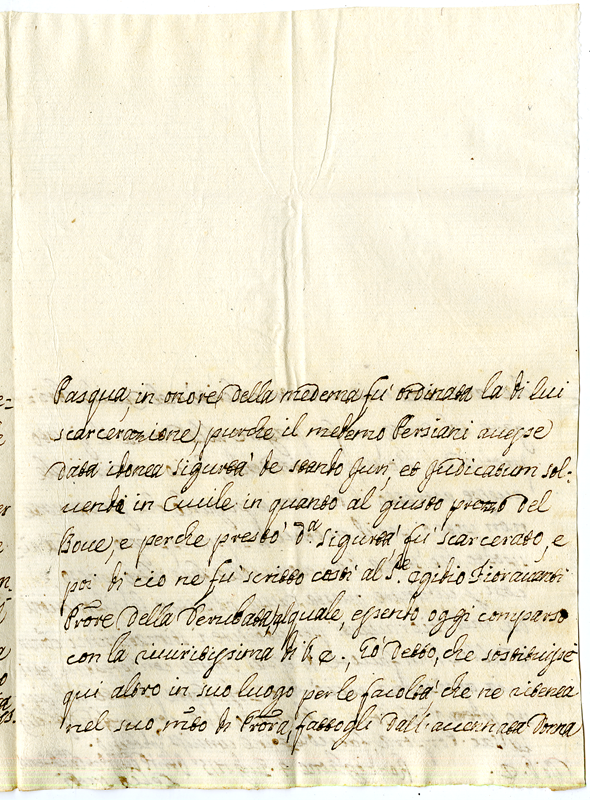 Pasqua, in onore della medema fu' ordinata la di lui
scarcerazione, purche il medemo Persiani auesse
data idonea sigurtà de stando Juri, et Judicatum sol:
uendo in Ciuile in quanto al giusto prezzo del
Boue, e perche prestò d.ª sigurtà fu' scarcerato, e
poi di ciò ne fu' scritto costì al S.re Egidio Fiorauanti
Prõre della derubata, al quale, essendo oggi comparso
con la riueritissima di V. E., hò detto, che sostituisse
qui altro in suo luogo per le facoltà che ne riteneà
nel suo mãto di Prõra, fattogli dall'accennata Donna